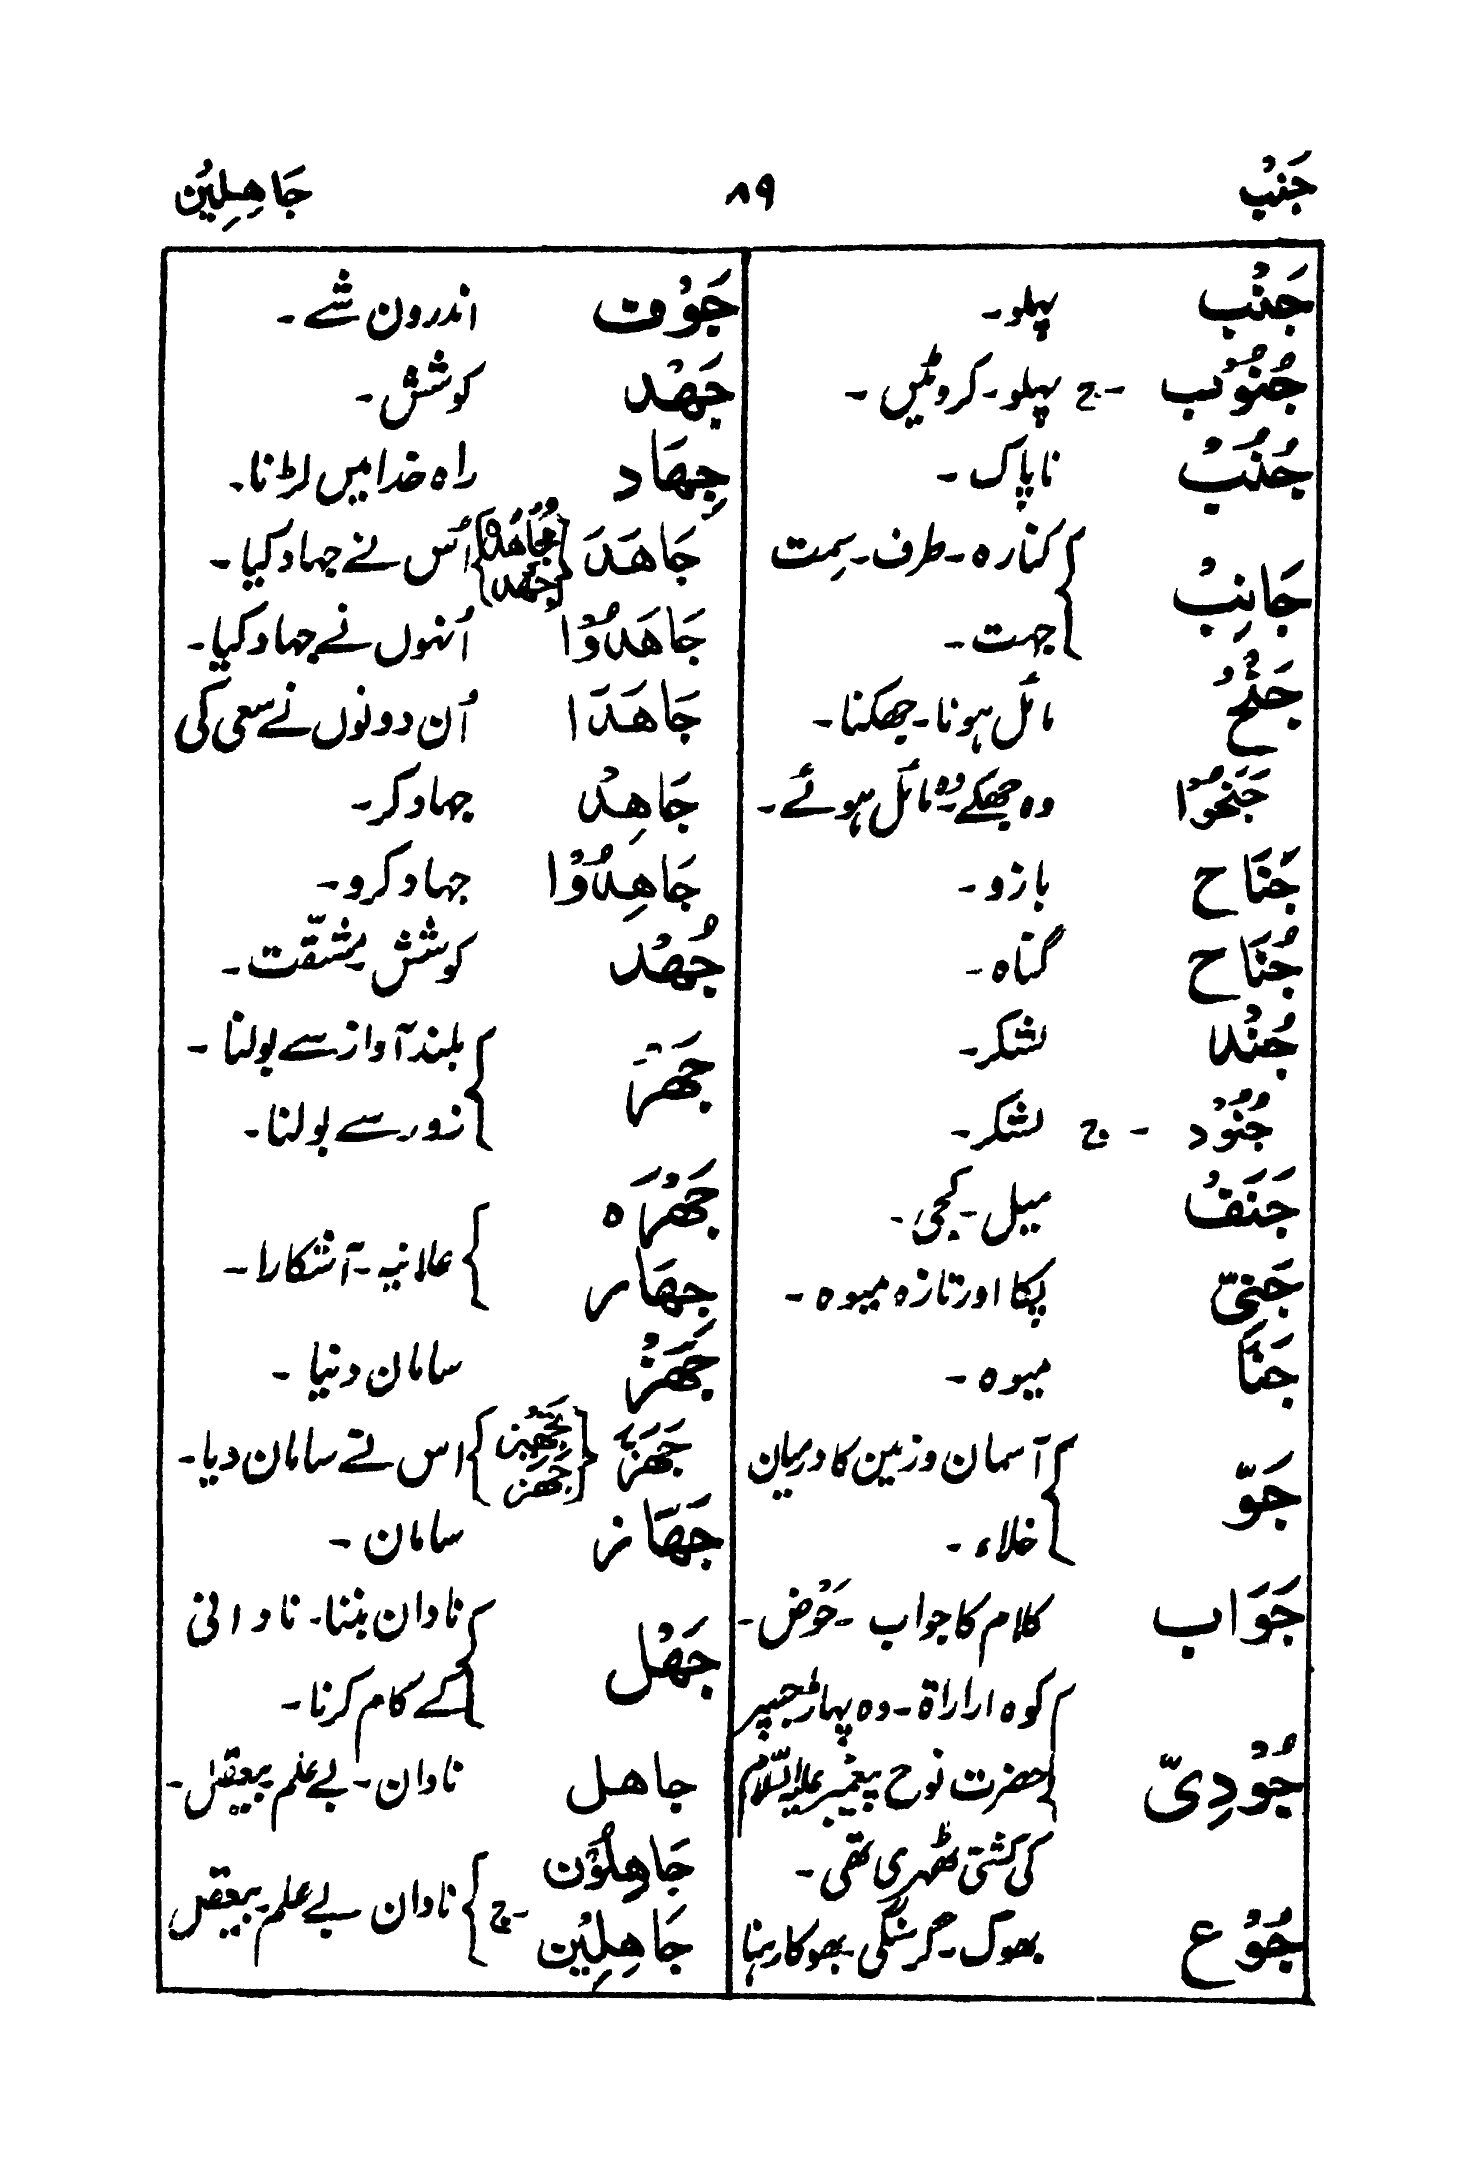 جَنْبٌ ۸۹ جَاهِلِيْن
جَنْب پہلو۔
جُنُوْب ۔ ج پہلو۔ کروٹیں۔
جُنُبٌ ناپاک۔
جَانِبْ کنارہ۔ طرف۔ سمت
جہت۔
جَنْحٌ مائل ہونا۔ جھکنا۔
جَنَحُوْا وہ جھکے۔ وہ مائل ہوئے۔
جَنَاح بازو۔
جُنَاح گناہ۔
جُنْد لشکر۔
جُنُوْد ۔ ج لشکر۔
جَنَفْ میل۔ کجی۔
جَنِيّ پکا اور تازہ میوہ۔
جَنَا میوہ۔
جَوّ آسمان و زمین کا درمیان
خلاء۔
جَوَاب کلام کا جواب ۔ حَوْض۔
کوہ اراراۃ۔ وہ پہاڑ جسپر
جُوْدِيّ حضرت نوح پیغمبر علیہ السّلام
کی کشتی ٹھہری تھی۔
جُوْع بھوک۔ گرسنگی۔ بھوکا رہنا
جَوْف اندرون شے۔
جَهْد کوشش۔
جِهَاد راہ خدا میں لڑنا۔
جَاهَدَ {مُجَاهَدَہ جَهْد} اُس نے جہاد کیا۔
جَاهَدُوْا اُنہوں نے جہاد کیا۔
جَاهَدَا اُن دونوں نے سعی کی
جَاهِدْ جہاد کر۔
جَاهِدُوْا جہاد کرو۔
جُهْد کوشش۔ مشقّت۔
جَهْر بلند آواز سے بولنا۔
زور سے بولنا۔
جَهْرَه
علانیہ۔ آشکارا۔
جِهَار
جَهْز سامان دنیا۔
جَهَّزَ {تَجْهِيْز جَهْز} اس نے سامان دیا۔
جَهَاز سامان۔
جَهْل نادان بننا۔ نادانی
کے کام کرنا۔
جاهل نادان۔ بے علم بیعقل۔
جَاهِلُوْن
۔ ج نادان بے علم بیعقل
جَاهِلِيْن